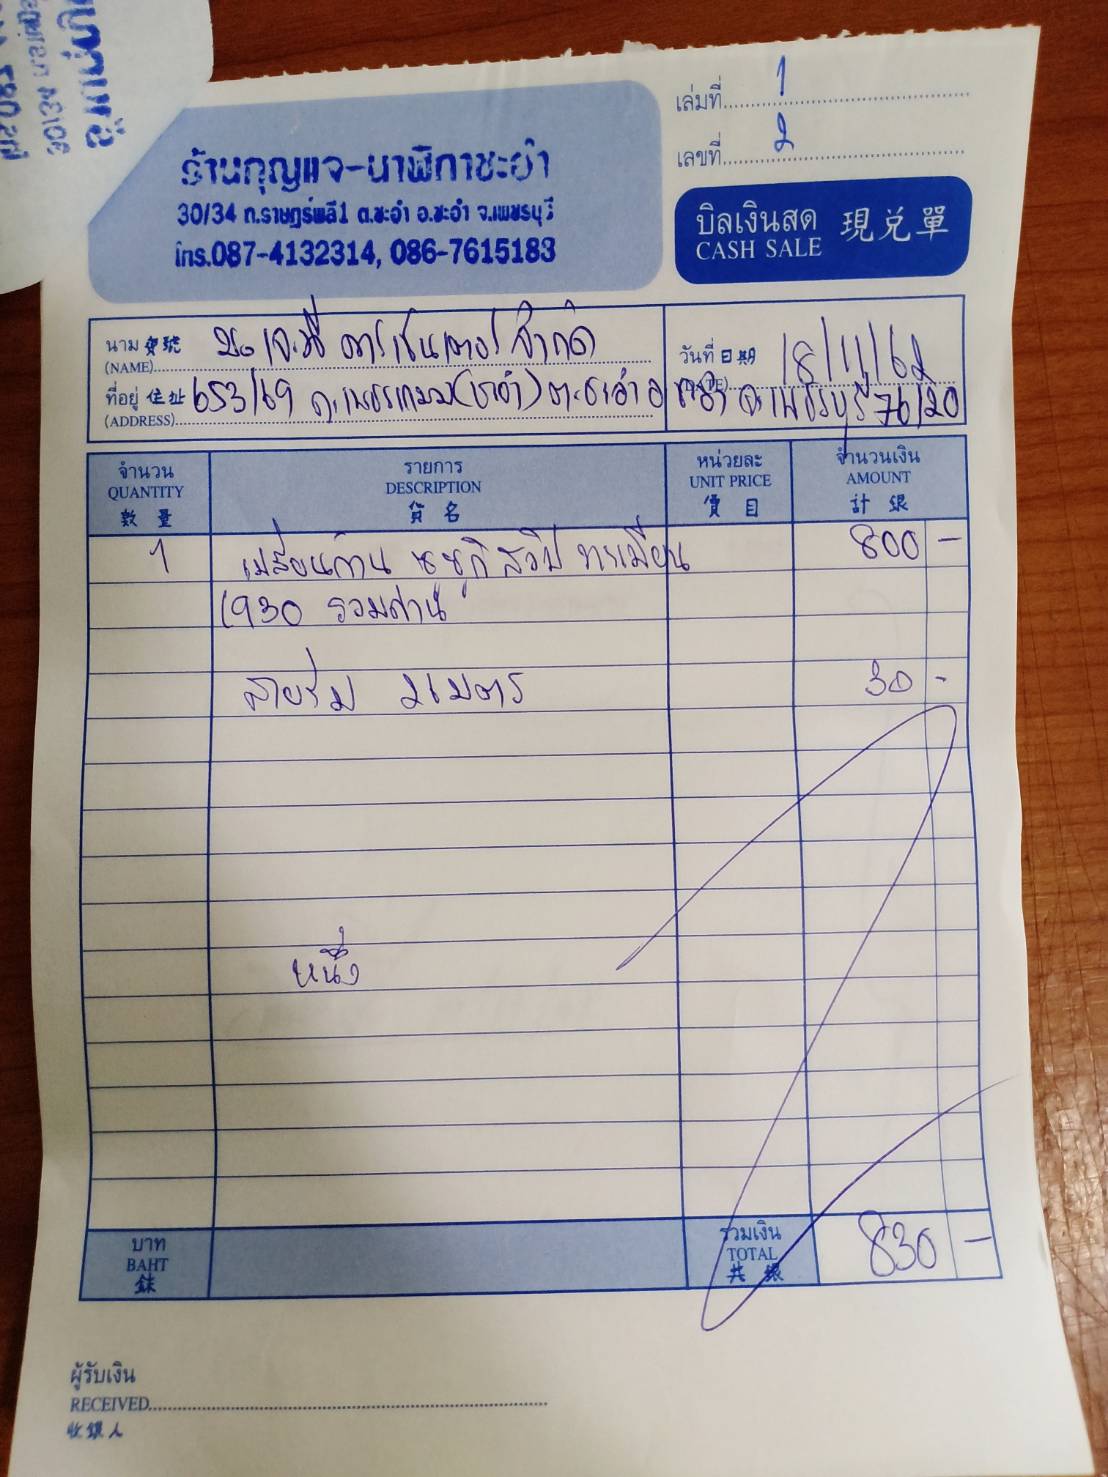 เล่มที่ 1
เลขที่ 2
ร้านกุญแจ-นาฬิกาชะอำ
30/34 ถ.ราษฎร์พลี1 ต.ชะอำ อ.ชะอำ จ.เพชรบุรี
โทร.087-4132314, 086-7615183
บิลเงินสด 現兑單
CASH SALE
นาม 寶號 บจ. เจ.มี่ คาร์เซ็นเตอร์ จำกัด
(NAME)
วันที่ 日期 18/11/62
ที่อยู่ 住址 653/69 ถ.เพชรเกษม(ชะอำ) ต.ชะอำ อ.ชะอำ จ.เพชรบุรี 76120
(ADDRESS)
จำนวน รายการ หน่วยละ จำนวนเงิน
QUANTITY DESCRIPTION UNIT PRICE AMOUNT
數量 貨名 價目 計銀
1 เปลี่ยนถ่าน ซูซูกิ สวิฟ ทะเบียน 800 -
1930 รวมถ่าน
สายร่ม 2 เมตร 30 -
หนึ่ง
บาท รวมเงิน 830 -
BAHT TOTAL
銖 共銀
ผู้รับเงิน
RECEIVED
收銀人